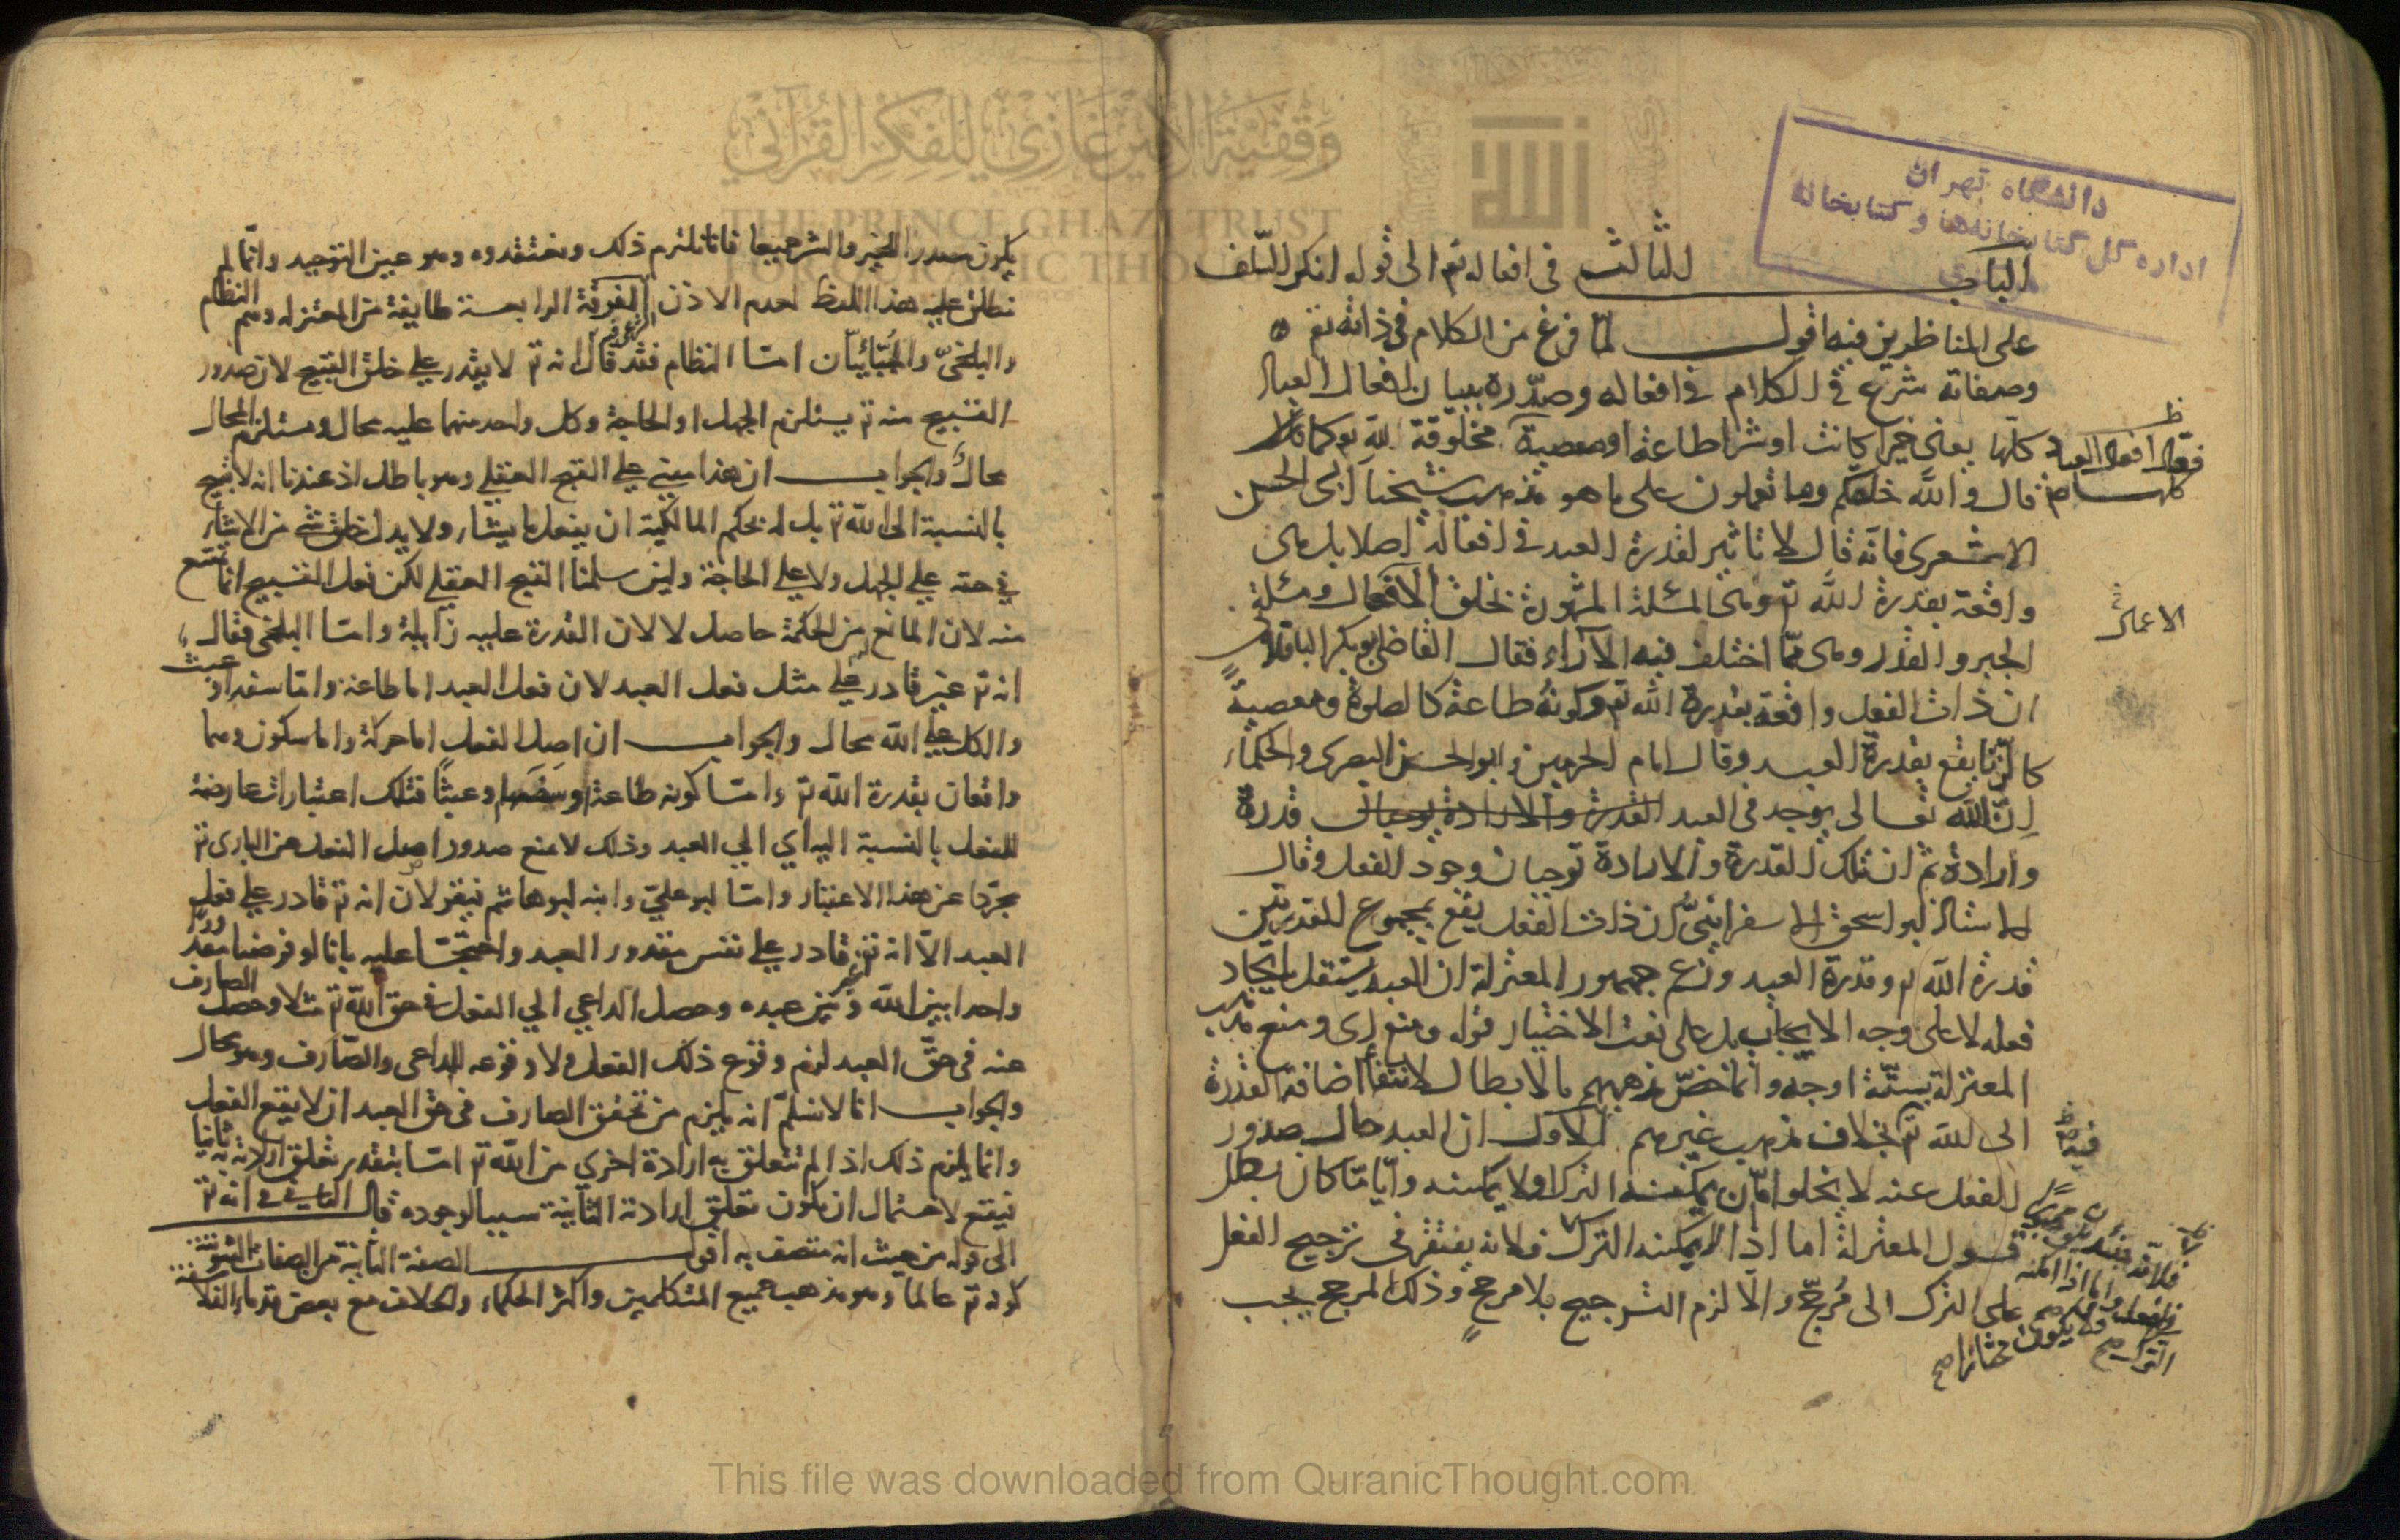 الباب الثالث في افعاله تم الى قوله انكر السلف
على المناظرين فيه اقول لمّا فرغ من الكلام في ذاته تع
وصفاته شرع في الكلام في افعاله وصدّره ببيان افعال العباد
كلها يعنى خيرا كانت او شرا طاعة او معصية مخلوقة لله تع كما
قال والله خلقكم وما تعملون على ما هو مذهب شيخنا ابى الحسن
الاشعرى فانّه قال لا تاثير لقدرة العبد في افعاله اصلا بل هى
واقعة بقدرة الله تم وهى المسئلة المشهورة بخلق الافعال ومسئلة
الجبر والقدر وهى ممّا اختلف فيه الآراء فقال القاضى ابو بكر الباقلانى
ان ذات الفعل واقعة بقدرة الله تم وكونه طاعة كالصلوة ومعصية
كالزنا يقع بقدرة العبد وقال امام الحرمين وابو الحسين البصرى والحكماء
انّ الله تعالى يوجد في العبد القدرة والارادة يوجبان قدرة
وارادة ثم ان تلك القدرة والارادة توجبان وجود الفعل وقال
الاستاذ ابو اسحق الاسفراينىّ ان ذات الفعل يقع بمجموع القدرتين
قدرة الله تم وقدرة العبد وزعم جمهور المعتزلة ان العبد يستقل بايجاد
فعله لا على وجه الايجاب بل على نعت الاختيار قوله ومنع اى ومنع مذهب
المعتزلة بستّة اوجه وانما خصّ مذهبهم بالابطال لانتفاء اضافة القدرة
الى الله تم بخلاف مذهب غيرهم الاول ان العبد حال صدور
الفعل عنه لا يخلوا امّا ان يمكنه الترك او لا يمكنه وايّاما كان بطل
قول المعتزلة اما اذا لم يمكنه الترك فلانه يفتقر في ترجيح الفعل
على الترك الى مُرجّح والّا لزم الترجيح بلا مرجح وذلك المرجح يجب
فقال افعال العباد
كلها
الاعمال
فيه
واما اذا امكنه
الترك صح
فلا يكون مختارا صح
دانشگاه تهران
اداره كل كتابخانه‌ها و كتابخانه
يكون مصدرا للخير والشر جميعا فانا نلتزم ذلك ونعتقده وهو عين التوحيد وانّما لم
نطلق عليه هذا اللفظ لعدم الاذن الشرعى الفرقة الرابعة طايفة من المعتزلة وهم النظام
والبلخىّ والجُبّائيّان امّا النظام فقد قال انه تم لا يقدر على خلق القبيح لان صدور
القبيح منه تم يستلزم الجهل او الحاجة وكل واحد منهما عليه محال ومستلزم المحال
محال والجواب ان هذا مبنى على القبح العقلى وهو باطل اذ عندنا انه لا قبيح
بالنسبة الى الله تم بل له بحكم المالكية ان يفعل ما يشاء ولا يدل خلق شئ من الاشياء
في حقه على الجهل ولا على الحاجة ولئن سلمنا القبح العقلى لكن فعل القبيح انما يمتنع
منه لان المانع من الحكمة حاصل لا لان القدرة عليه زايلة وامّا البلخى فقال
انه تم غير قادر على مثل فعل العبد لان فعل العبد اما طاعة واما سفه او عبث
والكل على الله محال والجواب ان اصل الفعل اما حركة واما سكون وهما
واقعان بقدرة الله تم وامّا كونه طاعة وسفها وعبثا فتلك اعتبارات عارضة
للفعل بالنسبة اليه اي الى العبد وذلك لا يمنع صدور اصل الفعل عن البارى تم
مجرّدا عن هذا الاعتبار وامّا ابو علىّ وابنه ابو هاشم فيقولان انه تم قادر على فعل
العبد الّا انه غير قادر على نفس مقدور العبد واحتجّا عليه بانا لو فرضنا مقدورا
واحدا بين الله وبين عبده وحصل الداعي الي الفعل في حق الله تم مثلا وحصل الصارف
عنه في حقّ العبد لزم وقوع ذلك الفعل ولا وقوعه للداعى والصّارف وهو محال
والجواب انا لا نسلمّ انه يلزم من تحقق الصارف في حق العبد ان لا يقع الفعل
وانما يلزم ذلك اذا لم تتعلق به ارادة اخري من الله تم امّا بتقدير تعلق ارادته به ثانيا
فيقع لاحتمال ان يكون تعلق ارادته الثانية سببا لوجوده قال الثانى في انه تم
الى قوله من حيث انه متصف به اقول الصفة الثانية من الصفات الثبوتية
كونه تم عالما وهو مذهب جميع المتكلمين واكثر الحكماء والخلاف مع بعض قدماء الفلا
وقفية الأمير غازي للفكر القرآني
THE PRINCE GHAZI TRUST
FOR QURANIC THOUGHT
This file was downloaded from QuranicThought.com